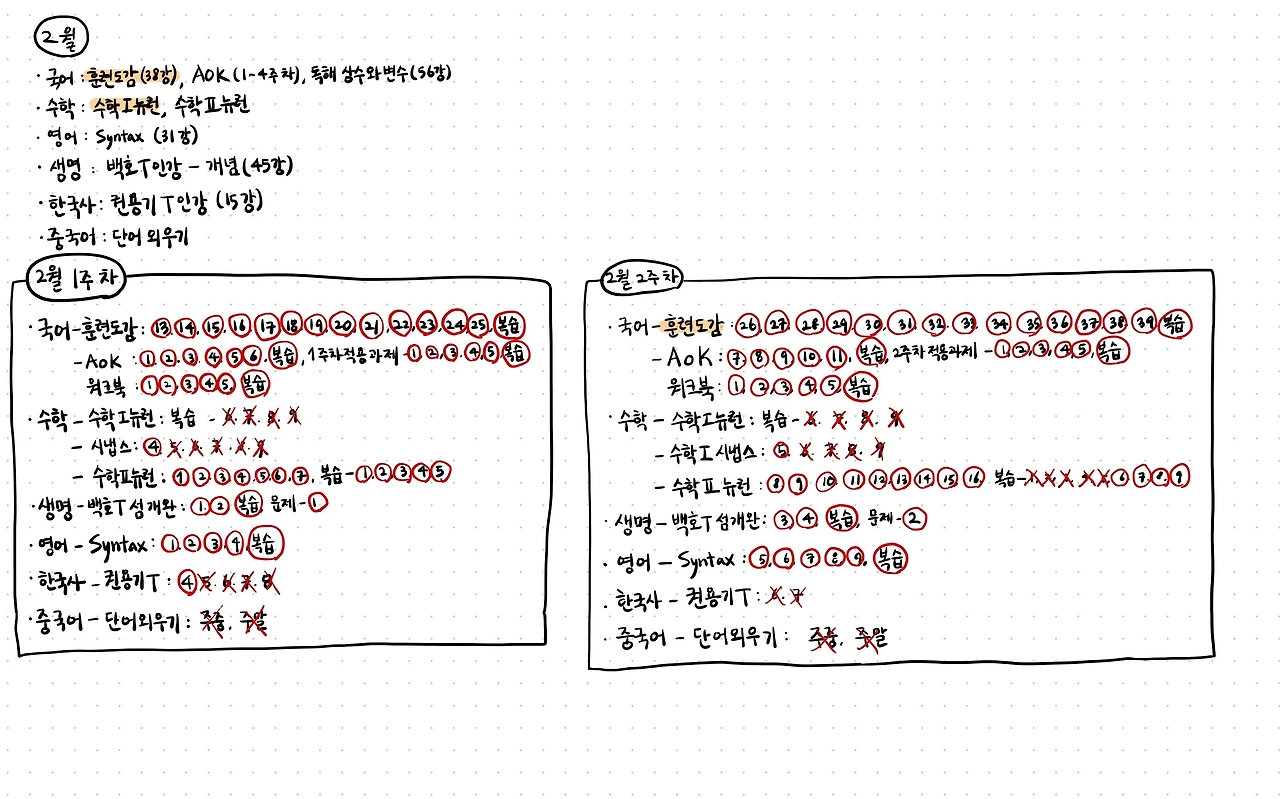 2월
· 국어 : 훈련도감(38강), AOK (1-4주차), 독해 상수와 변수(56강)
· 수학 : 수학I뉴런, 수학II뉴런
· 영어 : Syntax (31강)
· 생명 : 백호T인강 - 개념(45강)
· 한국사 : 권용기T인강 (15강)
· 중국어 : 단어 외우기
2월 1주차
· 국어 - 훈련도감 : 13. 14. 15. 16. 17. 18. 19. 20. 21. 22. 23. 24. 25. 복습
- AOK : 1. 2. 3. 4. 5. 6. 복습, 1주차적용과제 - 1. 2. 3. 4. 5. 복습
워크북 : 1. 2. 3. 4. 5. 복습
· 수학 - 수학I뉴런 : 복습 - 6. 7. 8. 9
- 시냅스 : 4. 5. 6. 7. 8. 9
- 수학II뉴런 : 1. 2. 3. 4. 5. 6. 7. 복습 - 1. 2. 3. 4. 5
· 생명 - 백호T섬개완 : 1. 2. 복습, 문제 - 1
· 영어 - Syntax : 1. 2. 3. 4. 복습
· 한국사 - 권용기T : 4. 5. 6. 7. 8
· 중국어 - 단어외우기 : 주중, 주말
2월 2주차
· 국어 - 훈련도감 : 26. 27. 28. 29. 30. 31. 32. 33. 34. 35. 36. 37. 38. 39. 복습
- AOK : 7. 8. 9. 10. 11. 복습, 2주차 적용과제 - 1. 2. 3. 4. 5. 복습
워크북 : 1. 2. 3. 4. 5. 복습
· 수학 - 수학I뉴런 : 복습 - 6. 7. 8. 9
- 수학I시냅스 : 5. 6. 7. 8. 9
- 수학II뉴런 : 8. 9. 10. 11. 12. 13. 14. 15. 16. 복습 - 1. 2. 3. 4. 5. 6. 7. 8. 9
· 생명 - 백호T섬개완 : 3. 4. 복습, 문제 - 2
· 영어 - Syntax : 5. 6. 7. 8. 9. 복습
· 한국사 - 권용기T : 6. 7
· 중국어 - 단어외우기 : 주중, 주말